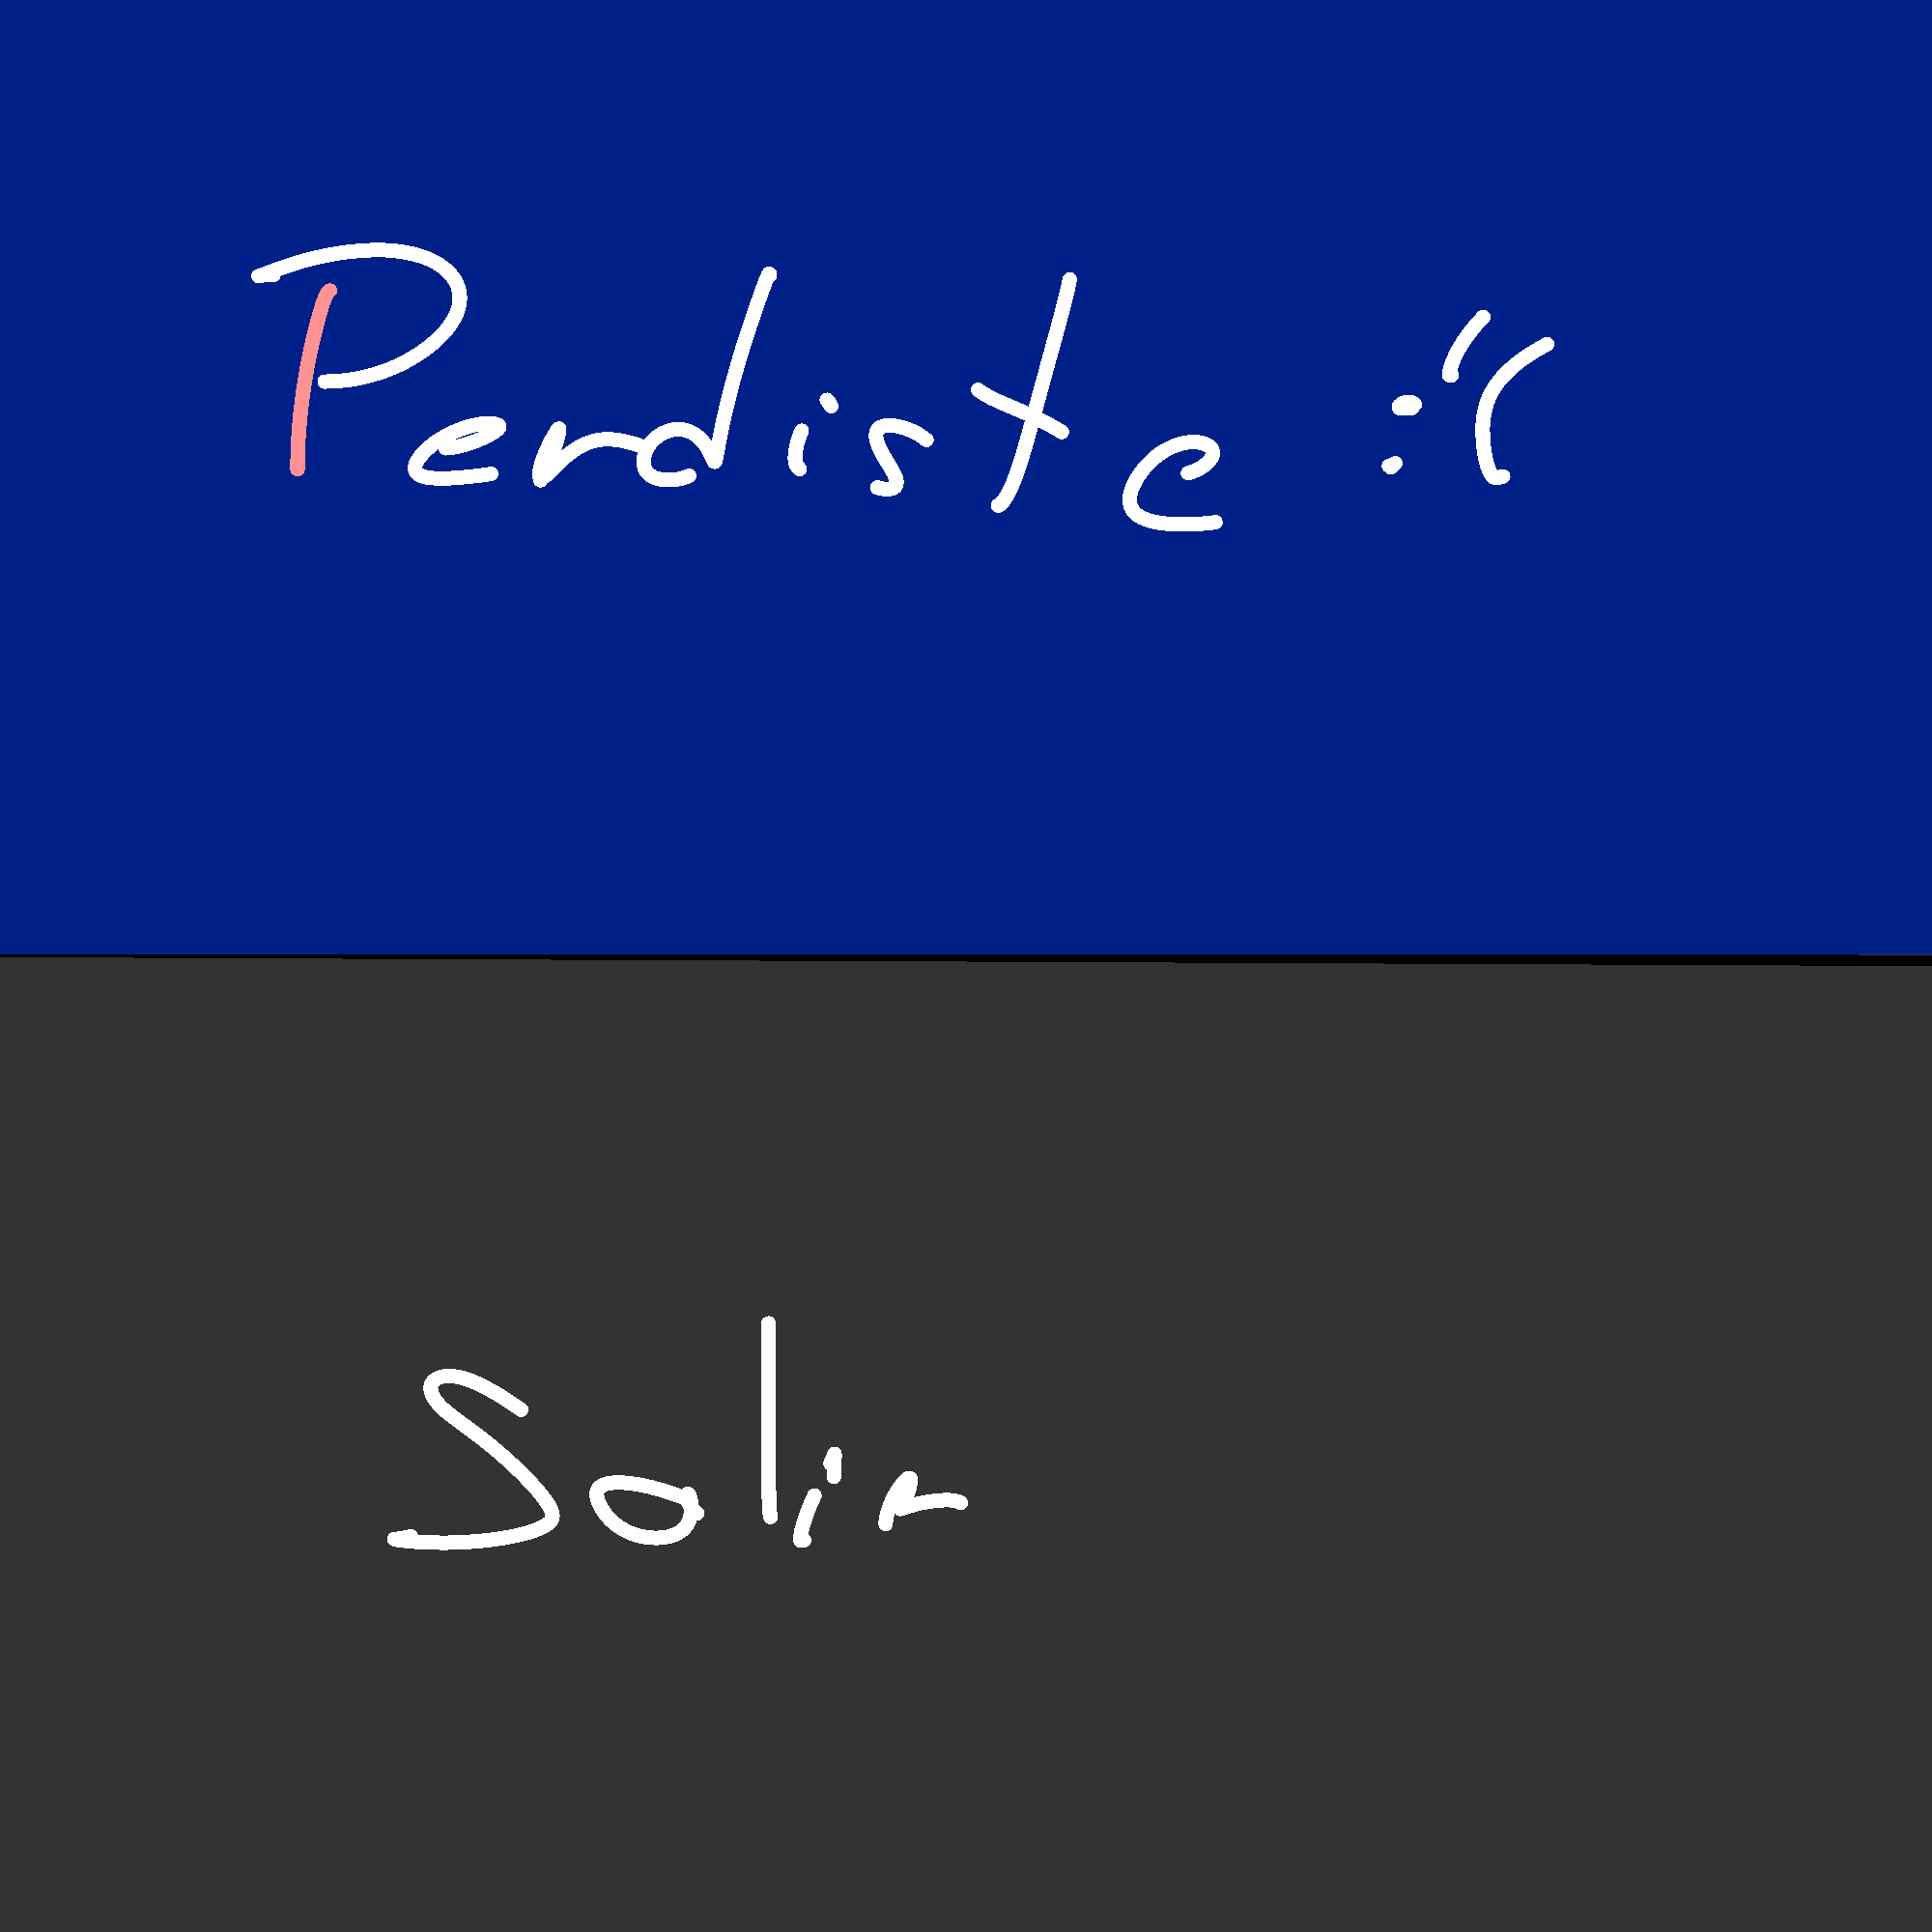 Perdiste :'(
Salir